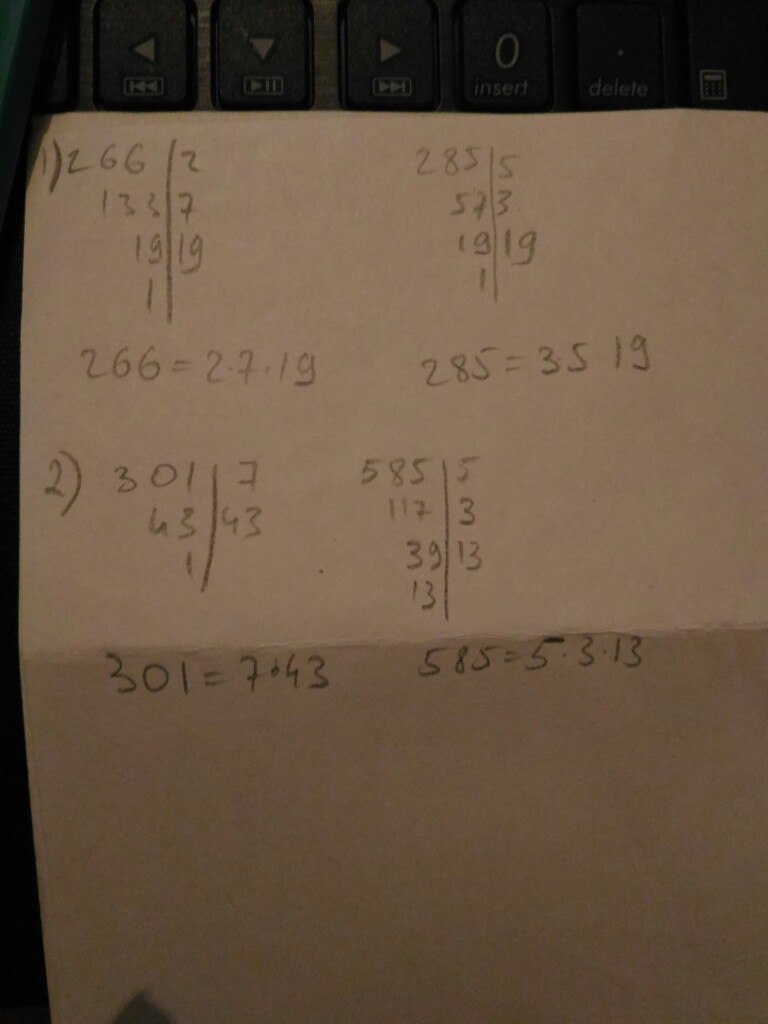 0
insert
.
delete
1) 266 | 2
133 | 7
19 | 19
1 |
285 | 5
57 | 3
19 | 19
1 |
266 = 2·7·19
285 = 35 19
2) 301 | 7
43 | 43
1 |
585 | 5
117 | 3
39 | 13
13 |
301 = 7·43
585 = 5·3·13